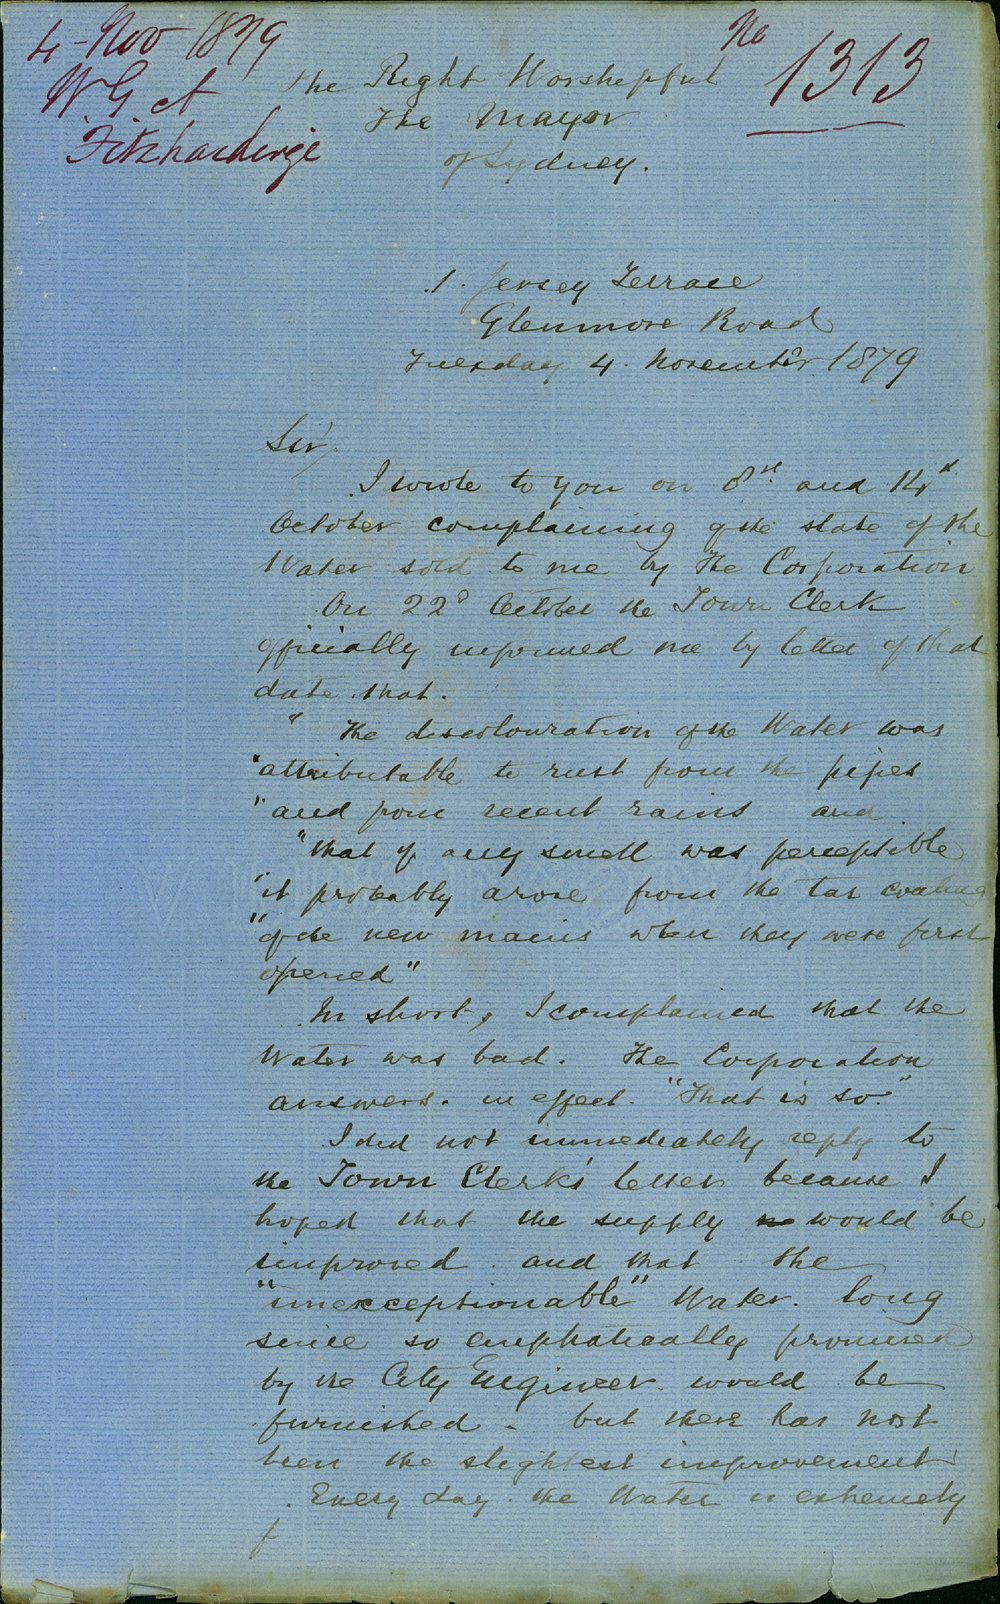 4 Nov 1879
W G A
Fitzhardinge
No
1313
The Right Worshipful
The Mayor
of Sydney.
1. Jersey Terrace
Glenmore Road
Tuesday 4. November 1879
Sir,
I wrote to you on 8th and 14th
October complaining of the state of the
Water sold to me by The Corporation
On 22d October the Town Clerk
officially informed me by letter of that
date that.
" The discolouration of the Water was
"attributable to rust from the pipes
"and from recent rains and
"that if any smell was perceptible
"it probably arose from the tar coating
"of the new mains when they were first
opened"
In short, I complained that the
Water was bad. The Corporation
answers. in effect. "That is so."
I did not immediately reply to
the Town Clerk's letter because I
hoped that the supply would be
improved and that the
"unexceptionable" Water. long
since so emphatically promised
by the City Engineer. would be
furnished - but there has not
been the slightest improvement
Every day the Water is extremely